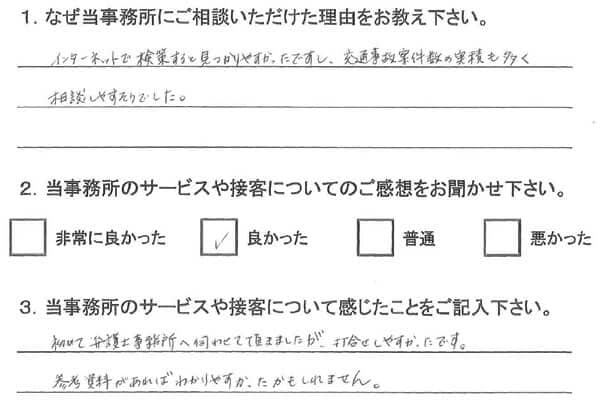 1. なぜ当事務所にご相談いただけた理由をお教え下さい。
インターネットで検策すると見つかりやすかったですし、交通事故案件数の実積も多く
相談しやすそうでした。
2. 当事務所のサービスや接客についてのご感想をお聞かせ下さい。
非常に良かった ✓ 良かった 普通 悪かった
3. 当事務所のサービスや接客について感じたことをご記入下さい。
初めて弁護士事務所へ伺わせて頂きましたが、打合せしやすかったです。
参考資料があればわかりやすかったかもしれません。